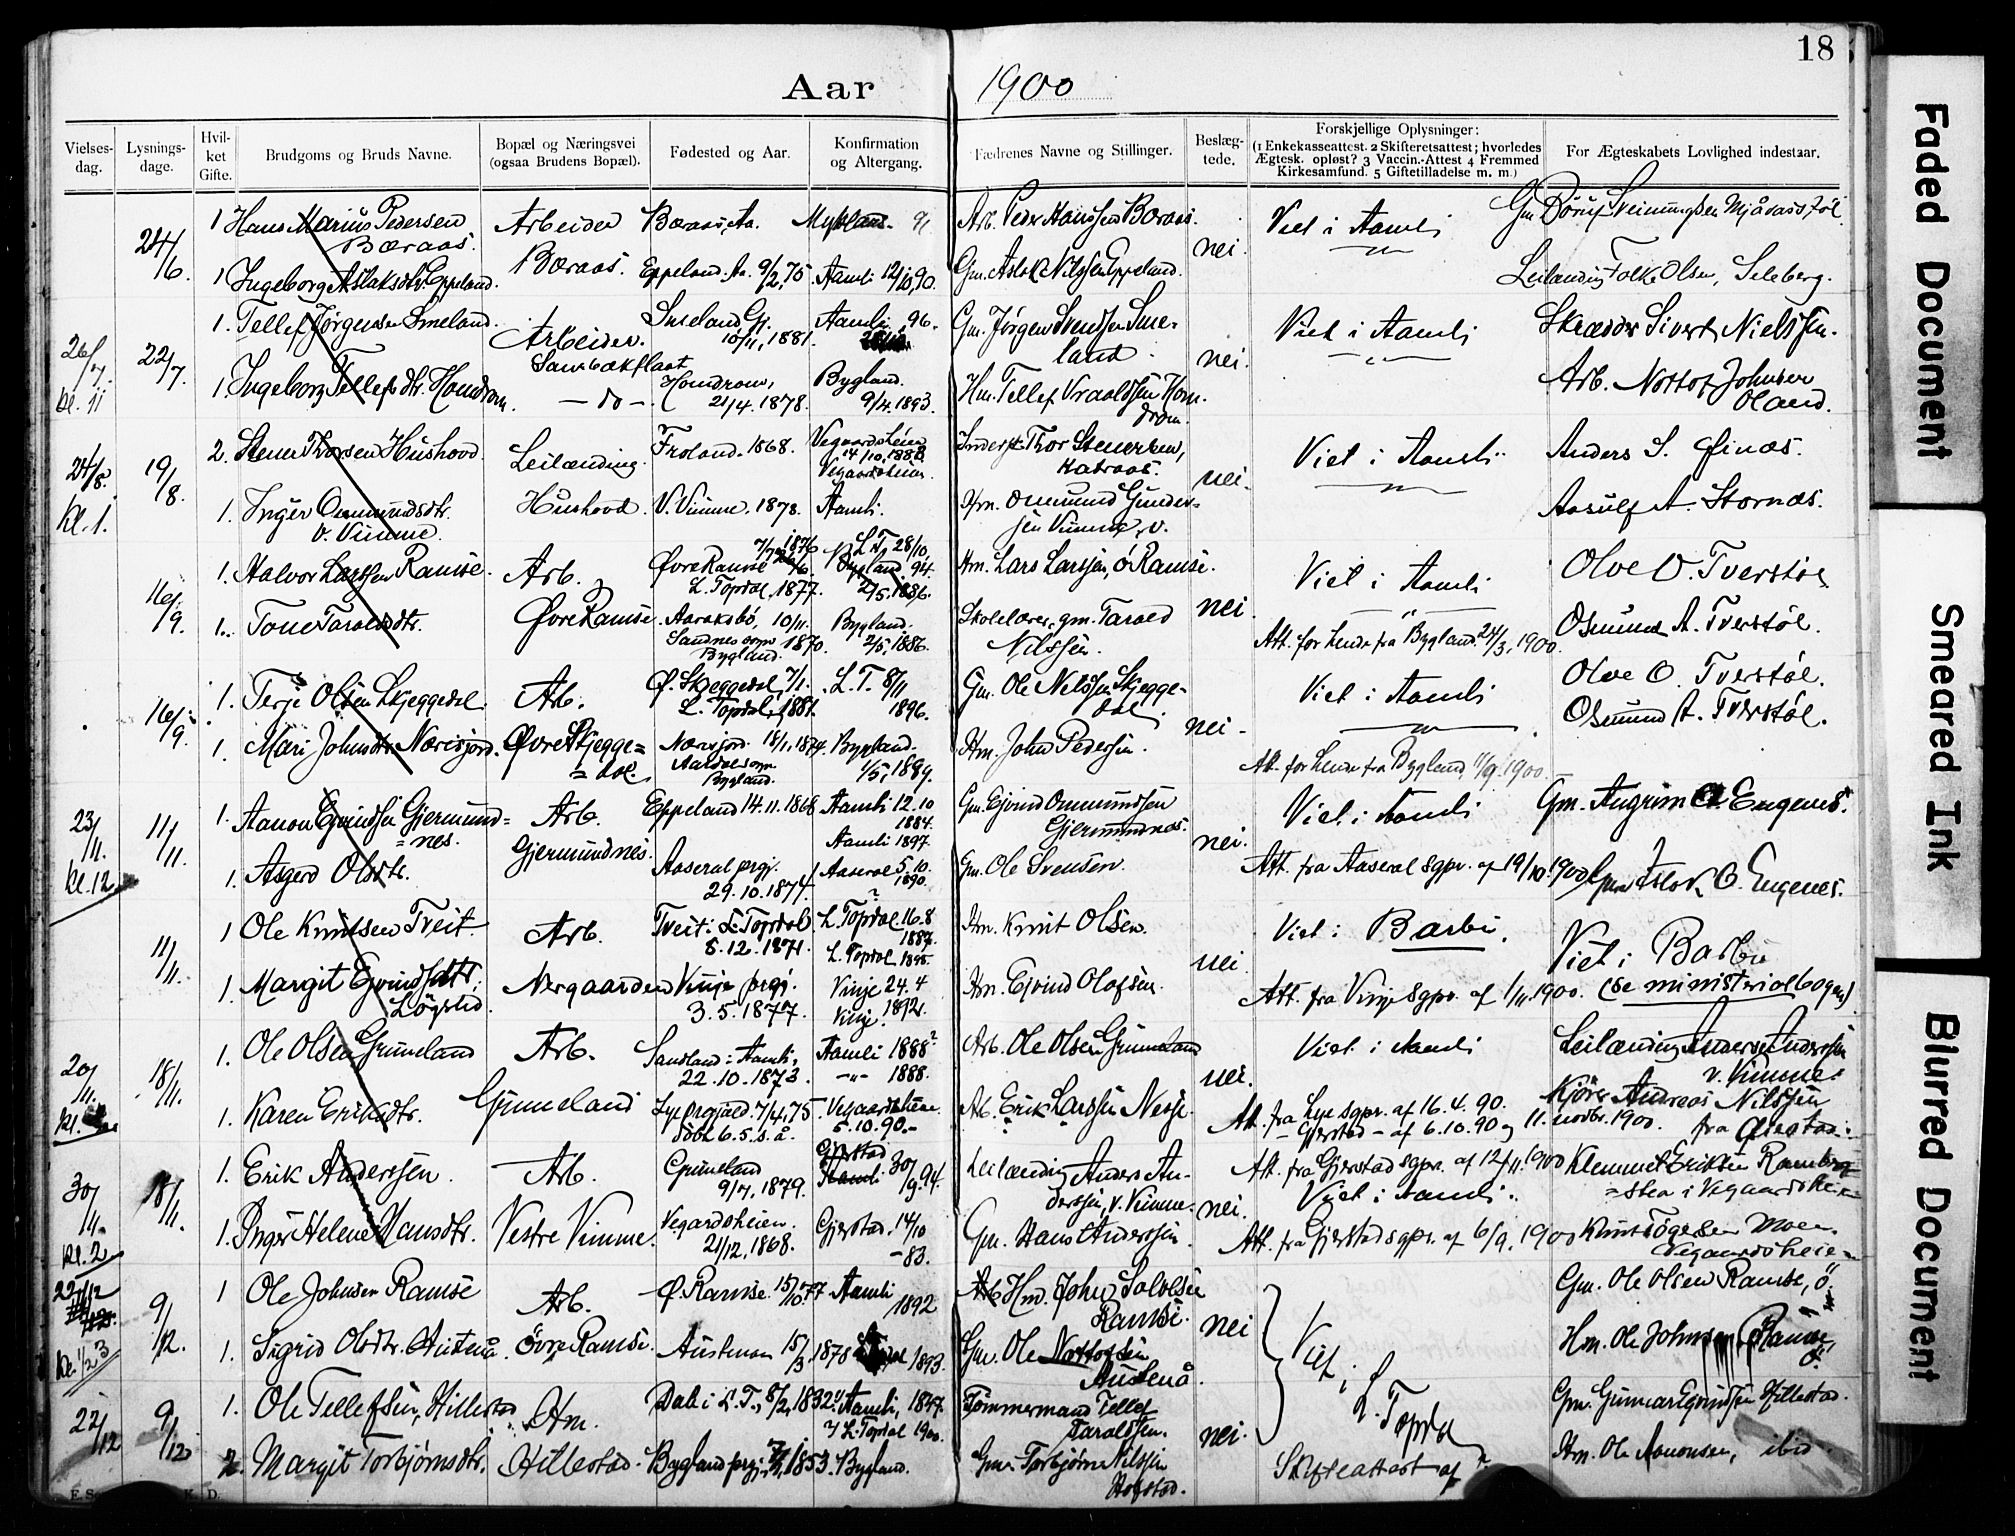 18
Aar 1900
Vielses-dag.
Lysnings-dage.
Hvil-ket Gifte.
Brudgoms og Bruds Navne.
Bopæl og Næringsvei (ogsaa Brudens Bopæl).
Fødested og Aar.
Konfirmation og Altergang.
Fædrenes Navne og Stillinger.
Beslæg-tede.
Forskjellige Oplysninger: (1 Enkekasseattest. 2 Skifteretsattest; hvorledes Ægtesk. opløst? 3 Vaccin.-Attest 4 Fremmed Kirkesamfund. 5 Giftetilladelse m. m.)
For Ægteskabets Lovlighed indestaar.
24/6. 1 Hans Marius Pedersen Bæraas. Arbeider Bæraas, Aa. Mykland. 91 Arb. Peder Hanssen Bæraas. nei. Viet i Aamli
1 Ingeborg Aslaksdtr. Eppeland. Bæraas. Eppeland. Aa. 9/2, 75 Aamli 12/10, 90. Gm. Aslak Nilssen Eppeland. Leilænding Folke Olsen, Seleberg.
26/7. kl. 11 22/7. 1. Tellef Jørgensen Smeland. Arbeider. Smeland, Gj. 10/11, 1881. Aamli, 96. Gm. Jørgen Svendsen Smeland. nei. Viet i Aamli Skrædder Sivert Nielssen.
1. Ingeborg Tellefsdtr. Homdrom. - do -. Homdrom, 21/4. 1878. Bygland. 9/4. 1893. Hm. Tellef Vraaldssen Homdrom. Arb. Nottof Johnsen Oland.
24/8. kl. 1. 19/8. 2. Stener Thorsen Hushovd. Leilænding. Froland. 1868. Vegaardsheien 14/10, 1883 Vegaardsheien. Thor Stenersen, Katraas. nei. Viet i Aamli Anders S. Øinæs.
1. Inger Ommundsdtr. V. Vimme. Hushovd. V. Vimme. 1878. Aamli. Hm. Ommund Gundersen Vimme, v. Aasulf A. Stornæs.
16/9. 1. Halvor Larssen Ramse. Arb. Øvre Ramse L. Topdal, 1877. L. T. 28/10, 94. Hm. Lars Larssen, ö. Ramse. nei Viet i Aamli Olve O. Tverstøl
1. Tone Taraldsdtr. Øvre Ramse. Aaraksbø, 10/11. 1870. Sandnes sogn Bygland. Bygland. 2/5, 1886. Skolelærer, gm. Tarald Nilssen. Att. for hende fra Bygland 24/3, 1900. Osmund A. Tverstøl.
16/9. 1. Terje Olsen Skjeggedal. Arb. Ø. Skjeggedal, 7/1. L. Topdal, 1881. L. T. 8/11 1896. Gm. Ole Nilssen Skjeggedal. nei. Viet i Aamli Olve O. Tverstøl.
1. Mari Johnsdtr. Næresjord. Øvre Skjeggedal. Næresjord 18/1, 1874. Aardals sogn Bygland. Bygland. 1/5, 1889. Hm. John Pedersen. Att. for hende fra Bygland 11/9. 1900. Osmund A. Tverstøl.
23/11. kl. 12 11/11. 1. Aanon Ejvindsen Gjermundnes. Arb. Eppeland 14.11.1868 Aamli 12.10 1884. Aamli 1897. Gm. Ejvind Ommundsen Gjermundnæs. nei. Viet i Aamli Gm. Angrim Engenes.
1. Asgerd Olsdtr. Gjermundnes. Aaseral prgj. 29.10.1874. Aaseral 5.10. 1890. Gm. Ole Svensen. Att. fra Aaseral sgpr. af 19/10. 1900 Gm. Aslak O. Engenes.
11/11. 1 Ole Knutsen Tveit. Arb. Tveit i L. Topdal 5.12.1871. L. Topdal 16.8 1887. L. Topdal 1895. Hm. Knut Olsen. nei. Viet i Barbu. Viet i Barbu
1. Margit Ejvindsdtr. Nergaarden Vinje prgj. 3.5.1877. Vinje 24.4 1892. Vinje. Hm. Ejvind Olafsen. Att. fra Vinje sgpr. af 1/11. 1900. (se ministerialbogen)
20/11. kl. 18/11. 1. Ole Olsen Grimeland Arb. Sandland i Aamli, 22.10.1873. Aamli 1888 -"- 1888. Arb. Ole Olsen Grimeland nei. Viet i Aamli Leilænding Anders Anderssen v. Vimme.
1. Karen Eriksdtr. Grimeland 7/4, 75. døbt 6.5.s.å. Vegaardsheien. 5.10.90. Arb. Erik Larssen Nesse. Att. fra Lye sgpr. af 16.4.90. - Gjerstad - af 6.10.90 og 11. novbr. 1900. Andreas Nilssen
30/11. kl. 2 18/11. 1. Erik Anderssen. Arb. Grimeland 9/7, 1879. Gjerstad 30/9. 94. Leilænding Anders Anderssen, v. Vimme. nei. Att. fra Gjerstad sgpr. af 12/11. 1900 Viet i Aamli. Klemmet Eriksen Ramberg
1. Inger Helene Hansdtr. Vestre Vimme. Vegardsheien. 21/12, 1868. Gjerstad, 14/10 -83. Gm. Hans Anderssen. Att. fra Gjerstad sgpr. af 6/9. 1900 Knut Tøgesen Moen Vegaardsheien
22/12 9/12. 1 Ole Johnsen Ramse Arb. Ø. Ramse. 15/10 77 Aamli 1892 Hm. John Salvesen Ramse. nei Viet i L. Topdal Gm. Ole Olsen Ramse, ö.
1. Sigrid Olsdtr. Austenå övre Ramse. Austenaa 15/3, 1878 1893. Gm. Ole Nottofsen Austenå. Hm. Ole Johnsen Ramse, ö.
22/12 9/12. 1. Ole Tellefsen, Hillestad Hm. Dale i L. T., 8/2, 1832. Aamli, 1847. L. Topdal 1900. Tømmermand Tellef Taraldsen. nei. Gm. Gunnar Egvindsen Hillestad.
2. Margit Torbjørnsdtr. Hillestad. Bygland prgj. 1853. Bygland. Gm. Torbjørn Nilssen Hofstad. Skifteattest af ? Hm. Ole Aanonsen, ibid.
E. S. K. D.
Faded Document
Smeared Ink
Blurred Document